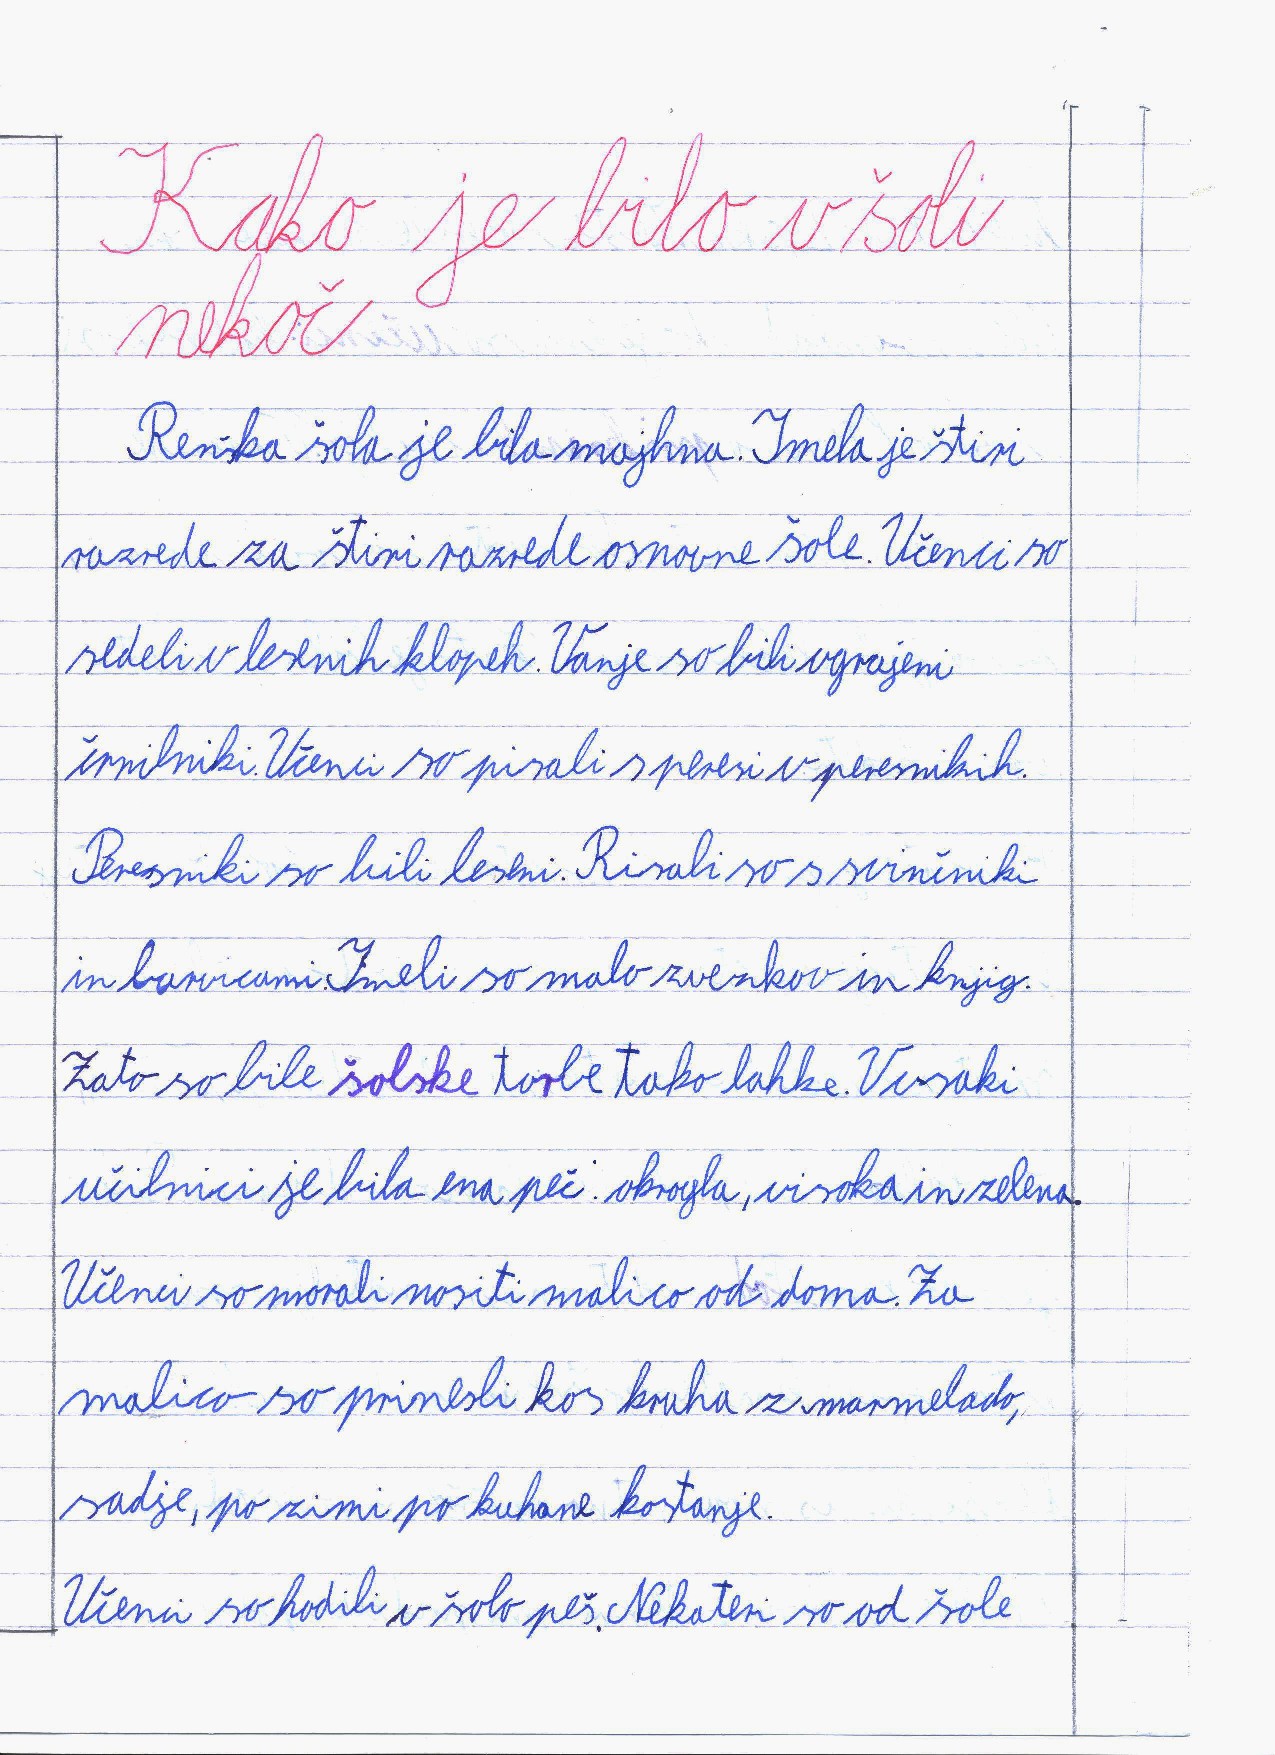 Kako je bilo v šoli
nekoč
Renška šola je bila majhna. Imela je štiri
razrede za štiri razrede osnovne šole. Učenci so
sedeli v lesenih klopeh. Vanje so bili vgrajeni
črnilniki. Učenci so pisali s peresi v peresnikih.
Peresniki so bili leseni. Risali so s svinčniki
in barvicami. Imeli so malo zvezkov in knjig.
Zato so bile šolske torbe tako lahke. V vsaki
učilnici je bila ena peč: okrogla, visoka in zelena.
Učenci so morali nositi malico od doma. Za
malico so prinesli kos kruha z marmelado,
sadje, po zimi po kuhane kostanje.
Učenci so hodili v šolo peš. Nekateri so od šole